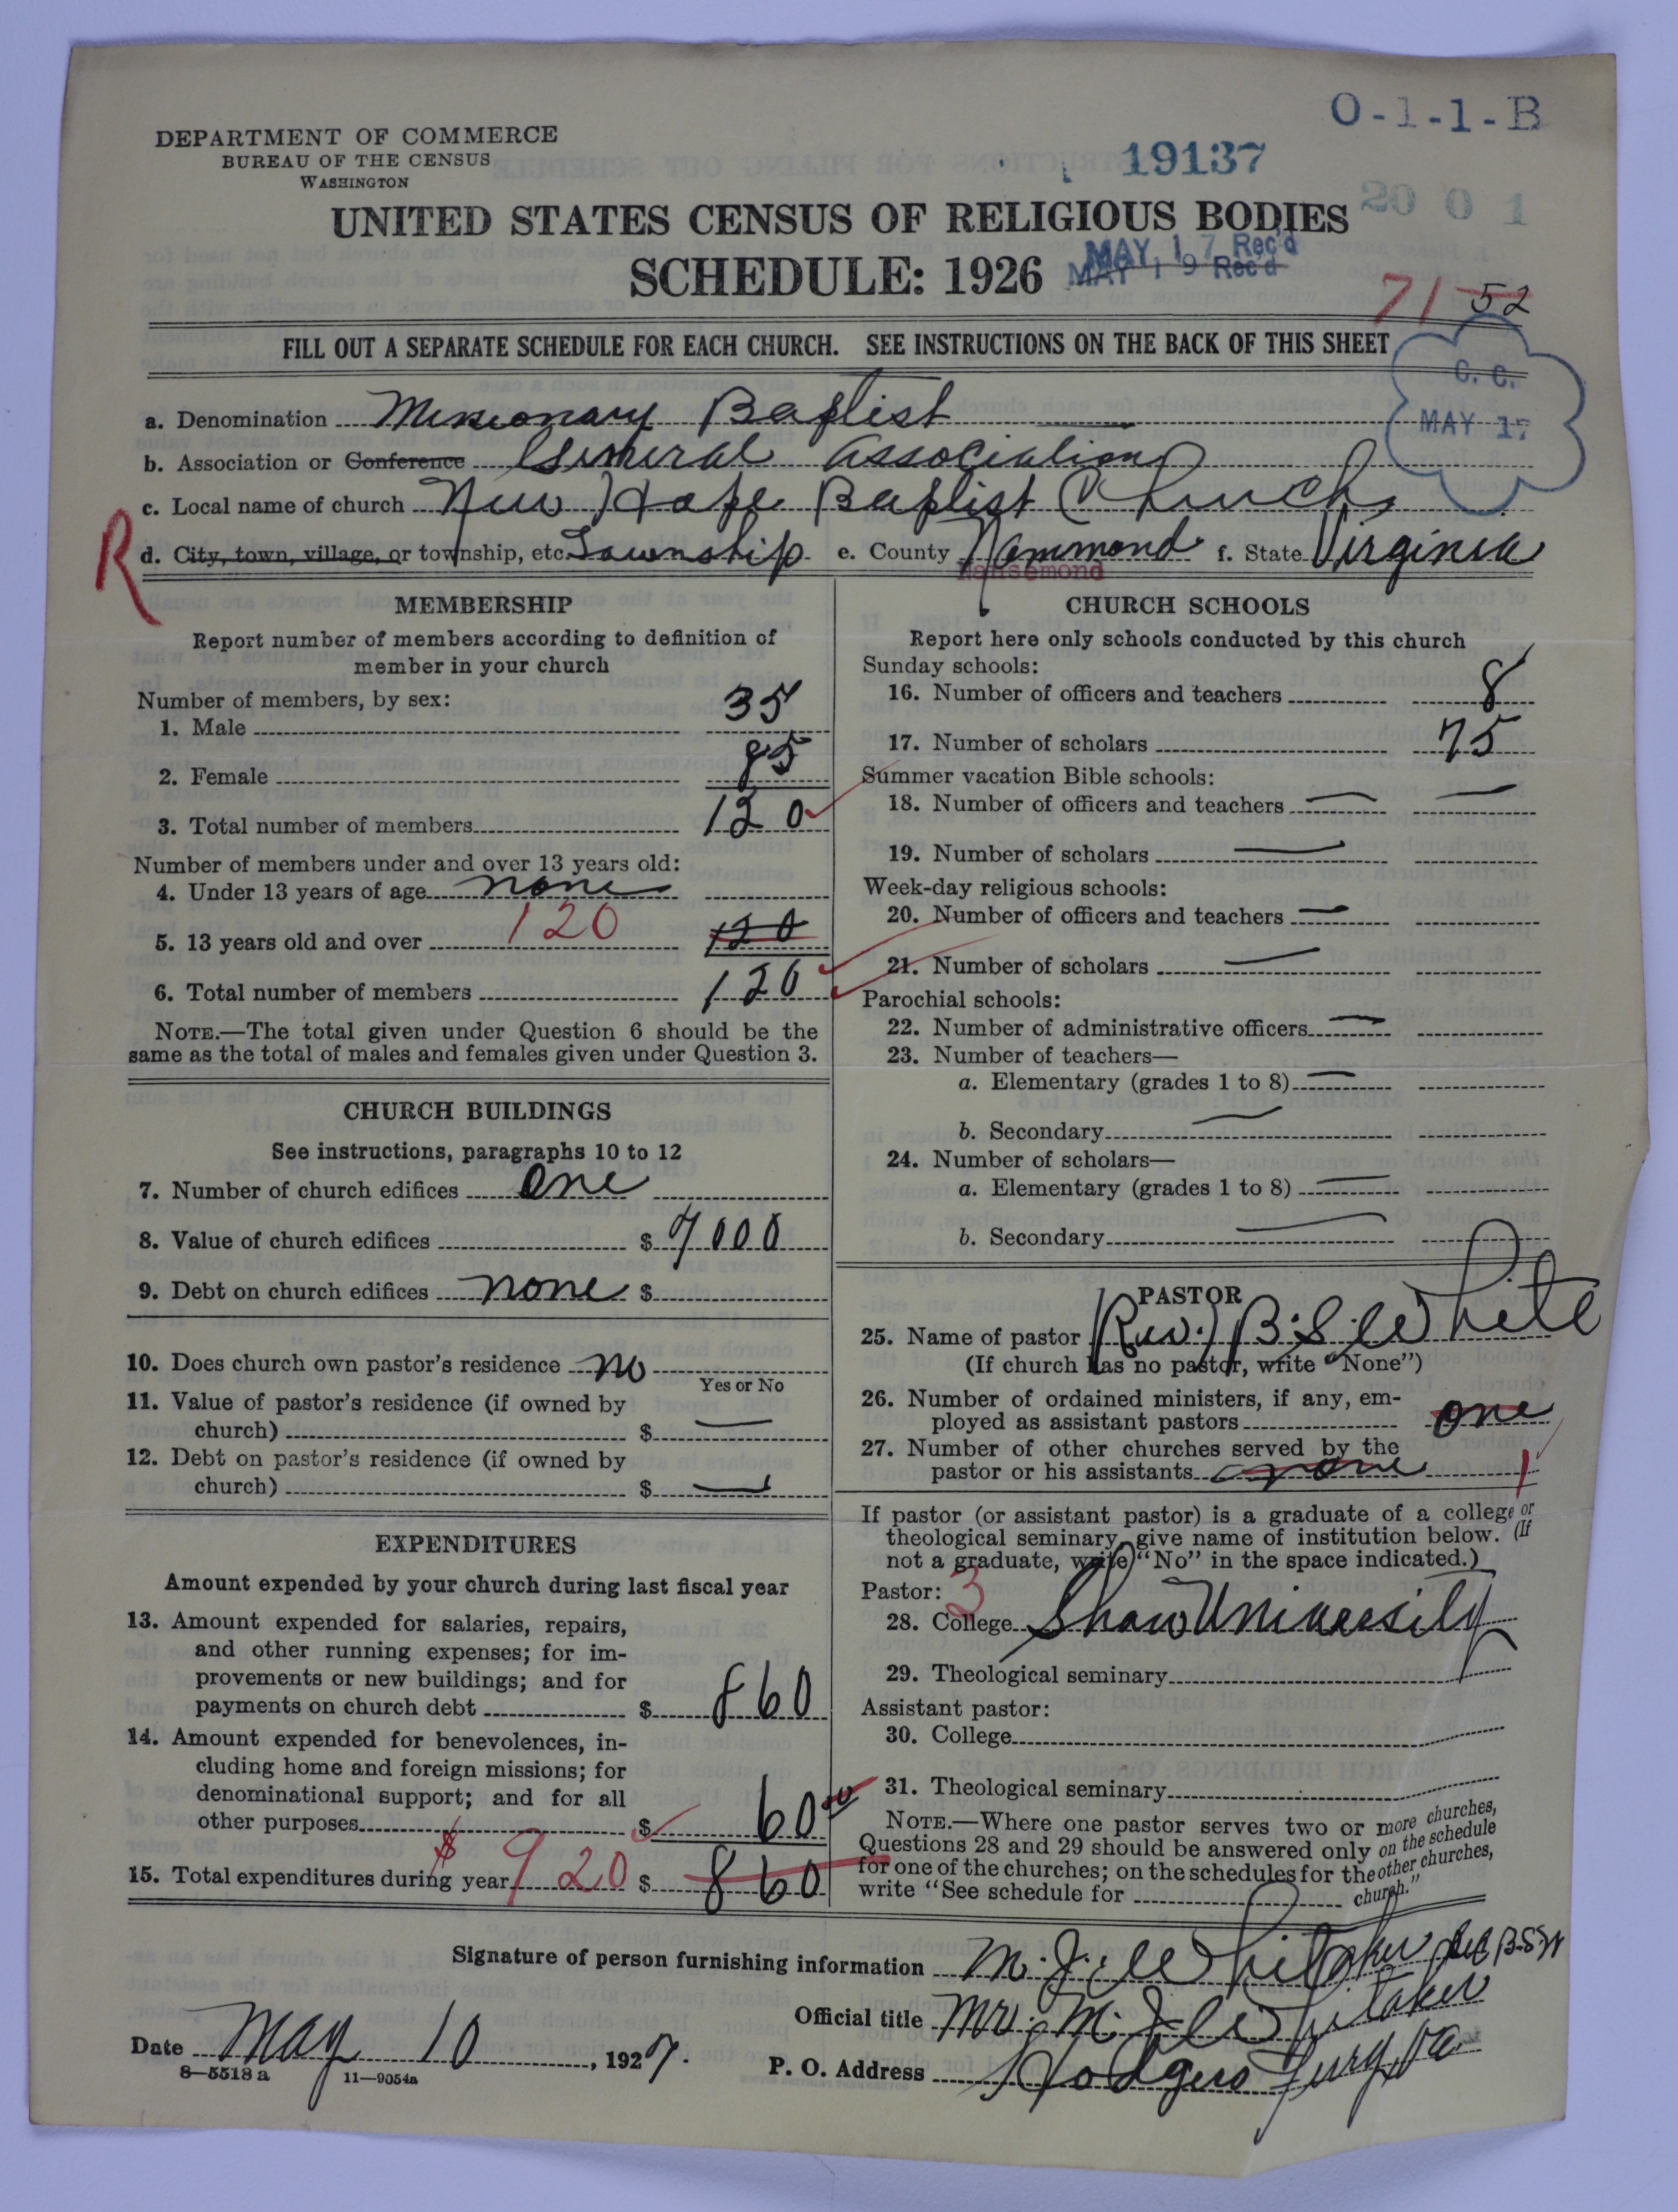 O-1-1-B
DEPARTMENT OF COMMERCE
BUREAU OF THE CENSUS
WASHINGTON
19137
20 0 1
UNITED STATES CENSUS OF RELIGIOUS BODIES
SCHEDULE: 1926
MAY 17 Rec'd
MAY 19 Rec'd
71 52
FILL OUT A SEPARATE SCHEDULE FOR EACH CHURCH. SEE INSTRUCTIONS ON THE BACK OF THIS SHEET
C. C.
MAY 17
a. Denomination Missionary Baptist
b. Association or Conference General Association
c. Local name of church New Hope Baptist Church
R
d. City, town, village, or township, etc. Township e. County Nansemond f. State Virginia
Nansemond
MEMBERSHIP
Report number of members according to definition of
member in your church
Number of members, by sex:
1. Male 35
2. Female 85
3. Total number of members 120
Number of members under and over 13 years old:
4. Under 13 years of age none
5. 13 years old and over 120 120
6. Total number of members 120
NOTE.—The total given under Question 6 should be the
same as the total of males and females given under Question 3.
CHURCH BUILDINGS
See instructions, paragraphs 10 to 12
7. Number of church edifices One
8. Value of church edifices $ 7000
9. Debt on church edifices none $
10. Does church own pastor's residence no
Yes or No
11. Value of pastor's residence (if owned by
church) $ —
12. Debt on pastor's residence (if owned by
church) $ —
EXPENDITURES
Amount expended by your church during last fiscal year
13. Amount expended for salaries, repairs,
and other running expenses; for im-
provements or new buildings; and for
payments on church debt $ 860
14. Amount expended for benevolences, in-
cluding home and foreign missions; for
denominational support; and for all
other purposes $ 60 00
15. Total expenditures during year $ 920 $ 860
CHURCH SCHOOLS
Report here only schools conducted by this church
Sunday schools:
16. Number of officers and teachers 8
17. Number of scholars 75
Summer vacation Bible schools:
18. Number of officers and teachers — —
19. Number of scholars —
Week-day religious schools:
20. Number of officers and teachers —
21. Number of scholars —
Parochial schools:
22. Number of administrative officers —
23. Number of teachers—
a. Elementary (grades 1 to 8) —
b. Secondary —
24. Number of scholars—
a. Elementary (grades 1 to 8) —
b. Secondary —
PASTOR
25. Name of pastor (Rev.) B. S. White
(If church has no pastor, write "None")
26. Number of ordained ministers, if any, em-
ployed as assistant pastors one
27. Number of other churches served by the
pastor or his assistants none 1
If pastor (or assistant pastor) is a graduate of a college or
theological seminary, give name of institution below. (If
not a graduate, write "No" in the space indicated.)
Pastor: 3
28. College Shaw University
29. Theological seminary
Assistant pastor:
30. College
31. Theological seminary
NOTE.—Where one pastor serves two or more churches,
Questions 28 and 29 should be answered only on the schedule
for one of the churches; on the schedules for the other churches,
write "See schedule for church."
Signature of person furnishing information M. J. Whitaker
Official title Mr. M. J. Whitaker
Date May 10, 1927.
P. O. Address Hodges Ferry, Va
8—5518 a 11—9054a